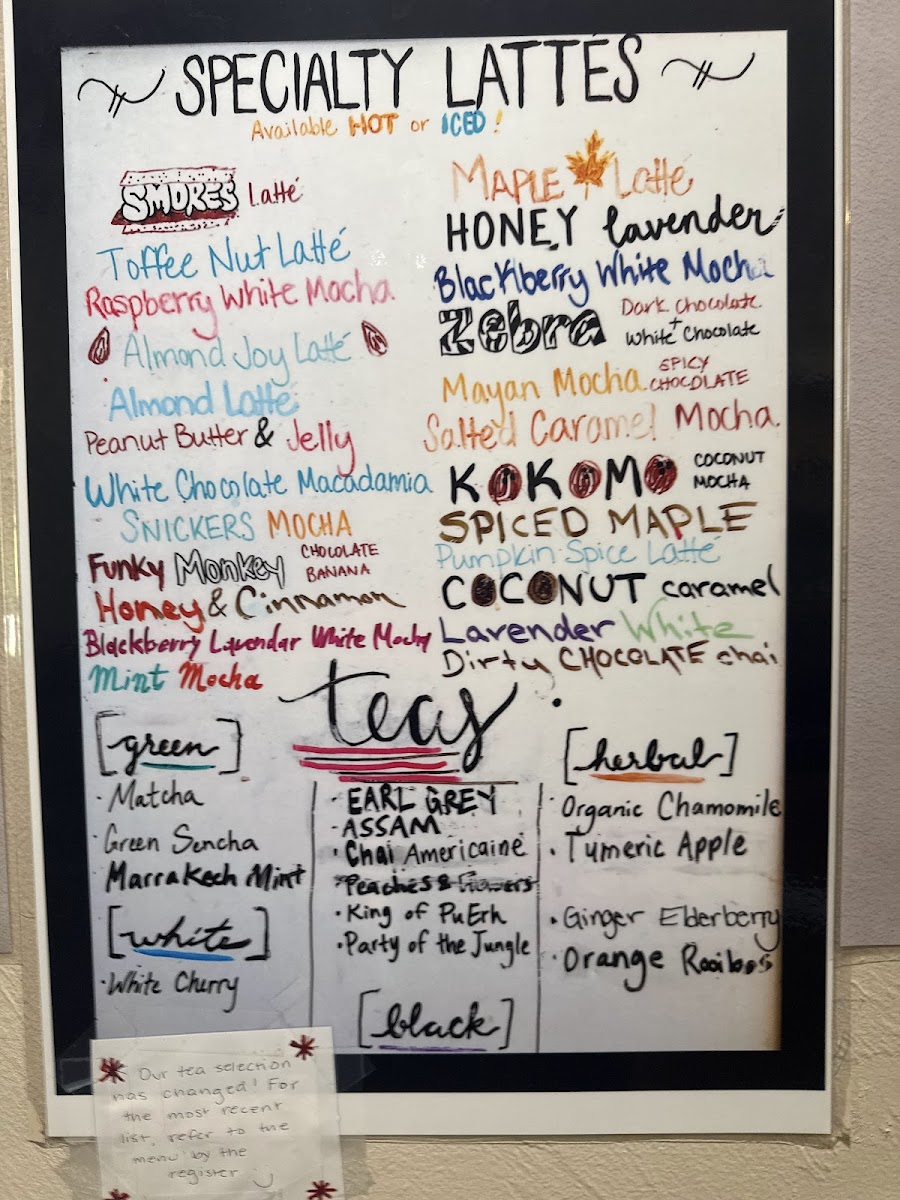 SPECIALTY LATTÉS
Available HOT or ICED!
SMORES Latté
Toffee Nut Latté
Raspberry White Mocha
Almond Joy Latté
Almond Latté
Peanut Butter & Jelly
White Chocolate Macadamia
SNICKERS MOCHA
Funky Monkey CHOCOLATE BANANA
Honey & Cinnamon
Blackberry Lavendar White Mocha
Mint Mocha
MAPLE Latté
HONEY lavender
Blackberry White Mocha
Zebra Dark Chocolate + White Chocolate
Mayan Mocha SPICY CHOCOLATE
Salted Caramel Mocha
KOKOMO COCONUT MOCHA
SPICED MAPLE
Pumpkin Spice Latté
COCONUT caramel
Lavender White
Dirty CHOCOLATE chai
teas
[green]
· Matcha
· Green Sencha
Marrakech Mint
[white]
· White Cherry
· EARL GREY
· ASSAM
· Chai Americaine
· Peaches & Flowers
· King of PuErh
· Party of the Jungle
[black]
[herbal]
· Organic Chamomile
· Tumeric Apple
· Ginger Elderberry
· Orange Rooibos
Our tea selection
has changed! For
the most recent
list, refer to the
menu by the
register